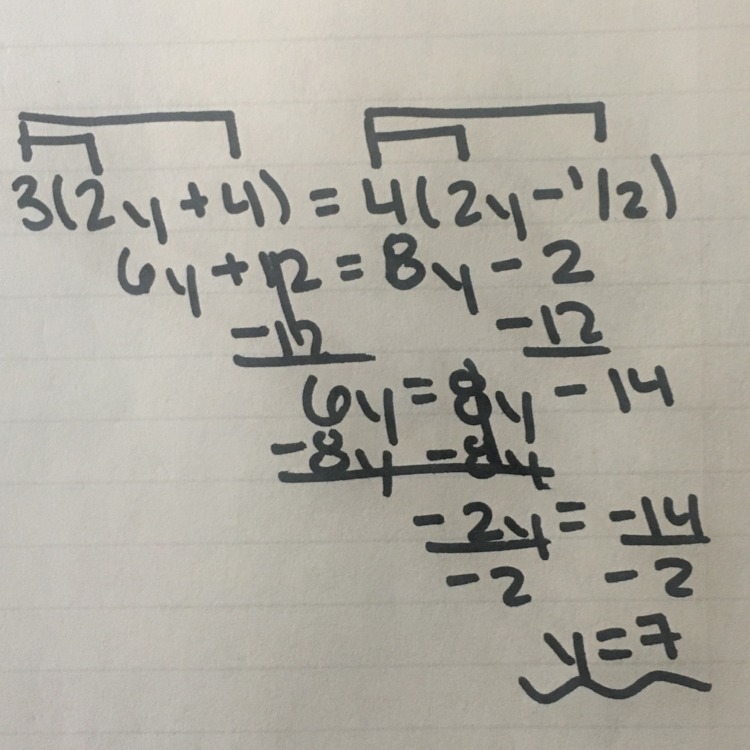 3(2y+4) = 4(2y-1/2)
6y+12 = 8y-2
-12 -12
6y = 8y - 14
-8y -8y
-2y = -14
-2 -2
y=7